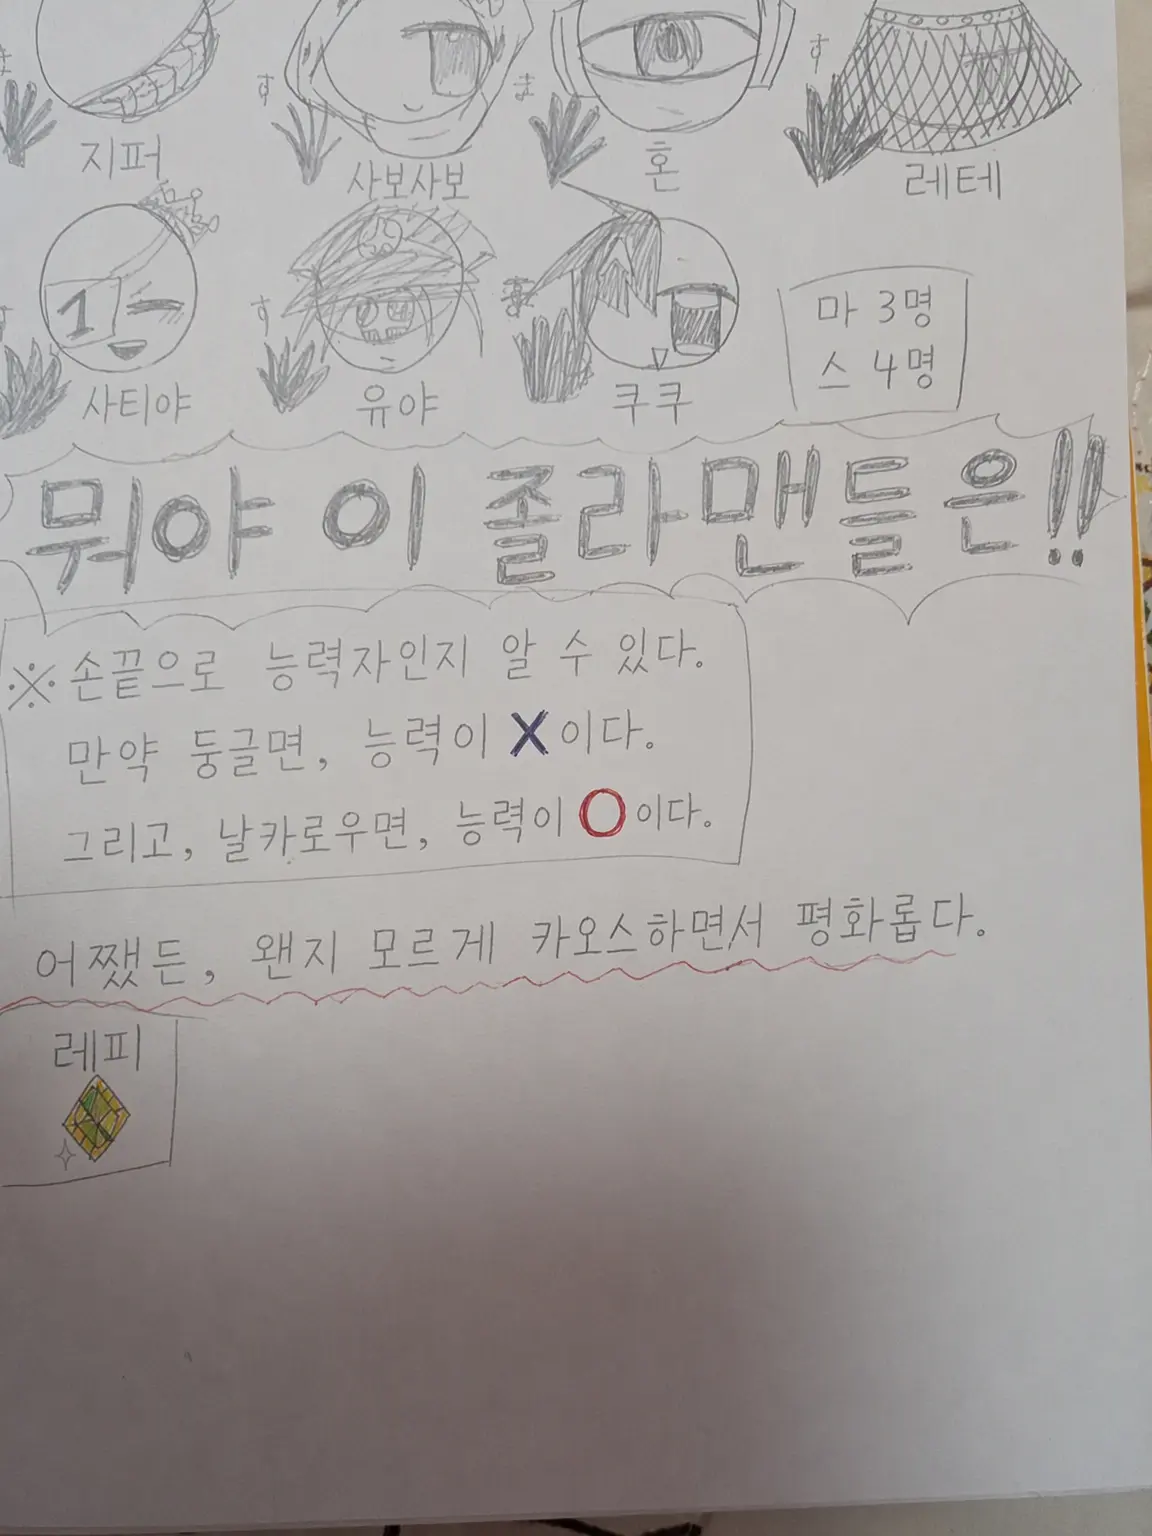 지퍼
사보사보
혼
레테
사티야
유야
쿠쿠
마 3명
스 4명
뭐야 이 졸라맨들은!!
※손끝으로 능력자인지 알 수 있다.
만약 둥글면, 능력이 X이다.
그리고, 날카로우면, 능력이 O이다.
어쨌든, 왠지 모르게 카오스하면서 평화롭다.
레피